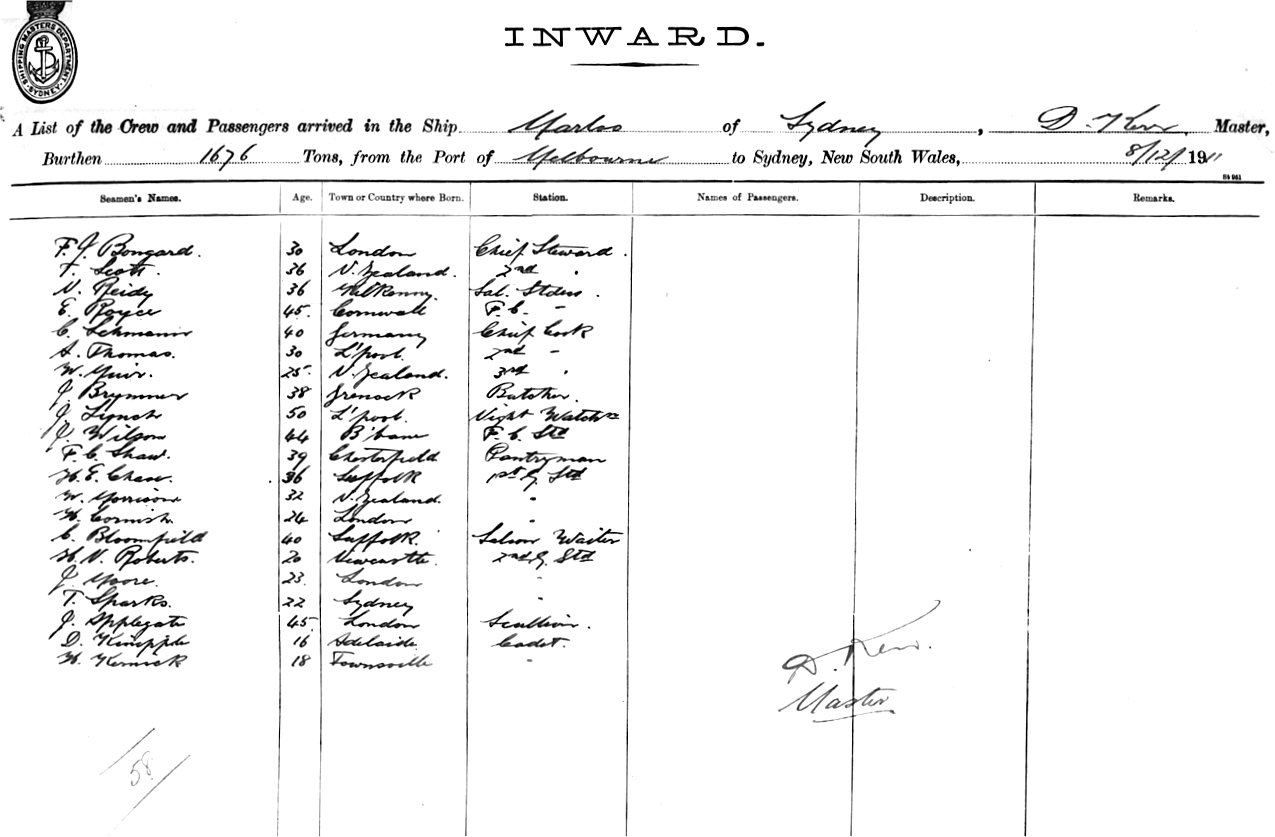 SHIPPING MASTERS DEPARTMENT SYDNEY
INWARD.
A List of the Crew and Passengers arrived in the Ship Marloo of Sydney, D. Kerr Master,
Burthen 1676 Tons, from the Port of Melbourne to Sydney, New South Wales, 8/12/1911
Seamen's Names. Age. Town or Country where Born. Station. Names of Passengers. Description. Remarks.
F. J. Bongard. 30 London Chief Steward.
T. Scott. 36 N. Zealand. 2nd "
N. Reidy 36 Kilkenny. Sal. Stdess.
E. Royce 45. Cornwall F.C. "
C. Lehmann 40 Germany Chief Cook
A. Thomas. 30 L'pool. 2nd "
W. Muir. 25. N. Zealand. 3rd "
J. Brymner 38 Grenock Butcher.
J. Lynch 50 L'pool. Night Watchn
J. Wilson 44 B'bane F.C. Std
F. C. Shaw. 39 Chesterfield Pantryman
H. E. Chase. 36 Suffolk 1st G. Std
W. Morrison 32 N. Zealand. "
H. Cornish 24 London "
C. Bloomfield 40 Suffolk. Saloon Waiter
H. N. Roberts. 20 Newcastle. 2nd G. Std
J. Moore. 23 London "
T. Sparks. 22 Sydney "
J. Applegate 45. London Scullion.
D. Kinipple 16 Adelaide. Cadet.
H. Kernick 18 Townsville "
D. Kerr.
Master
58